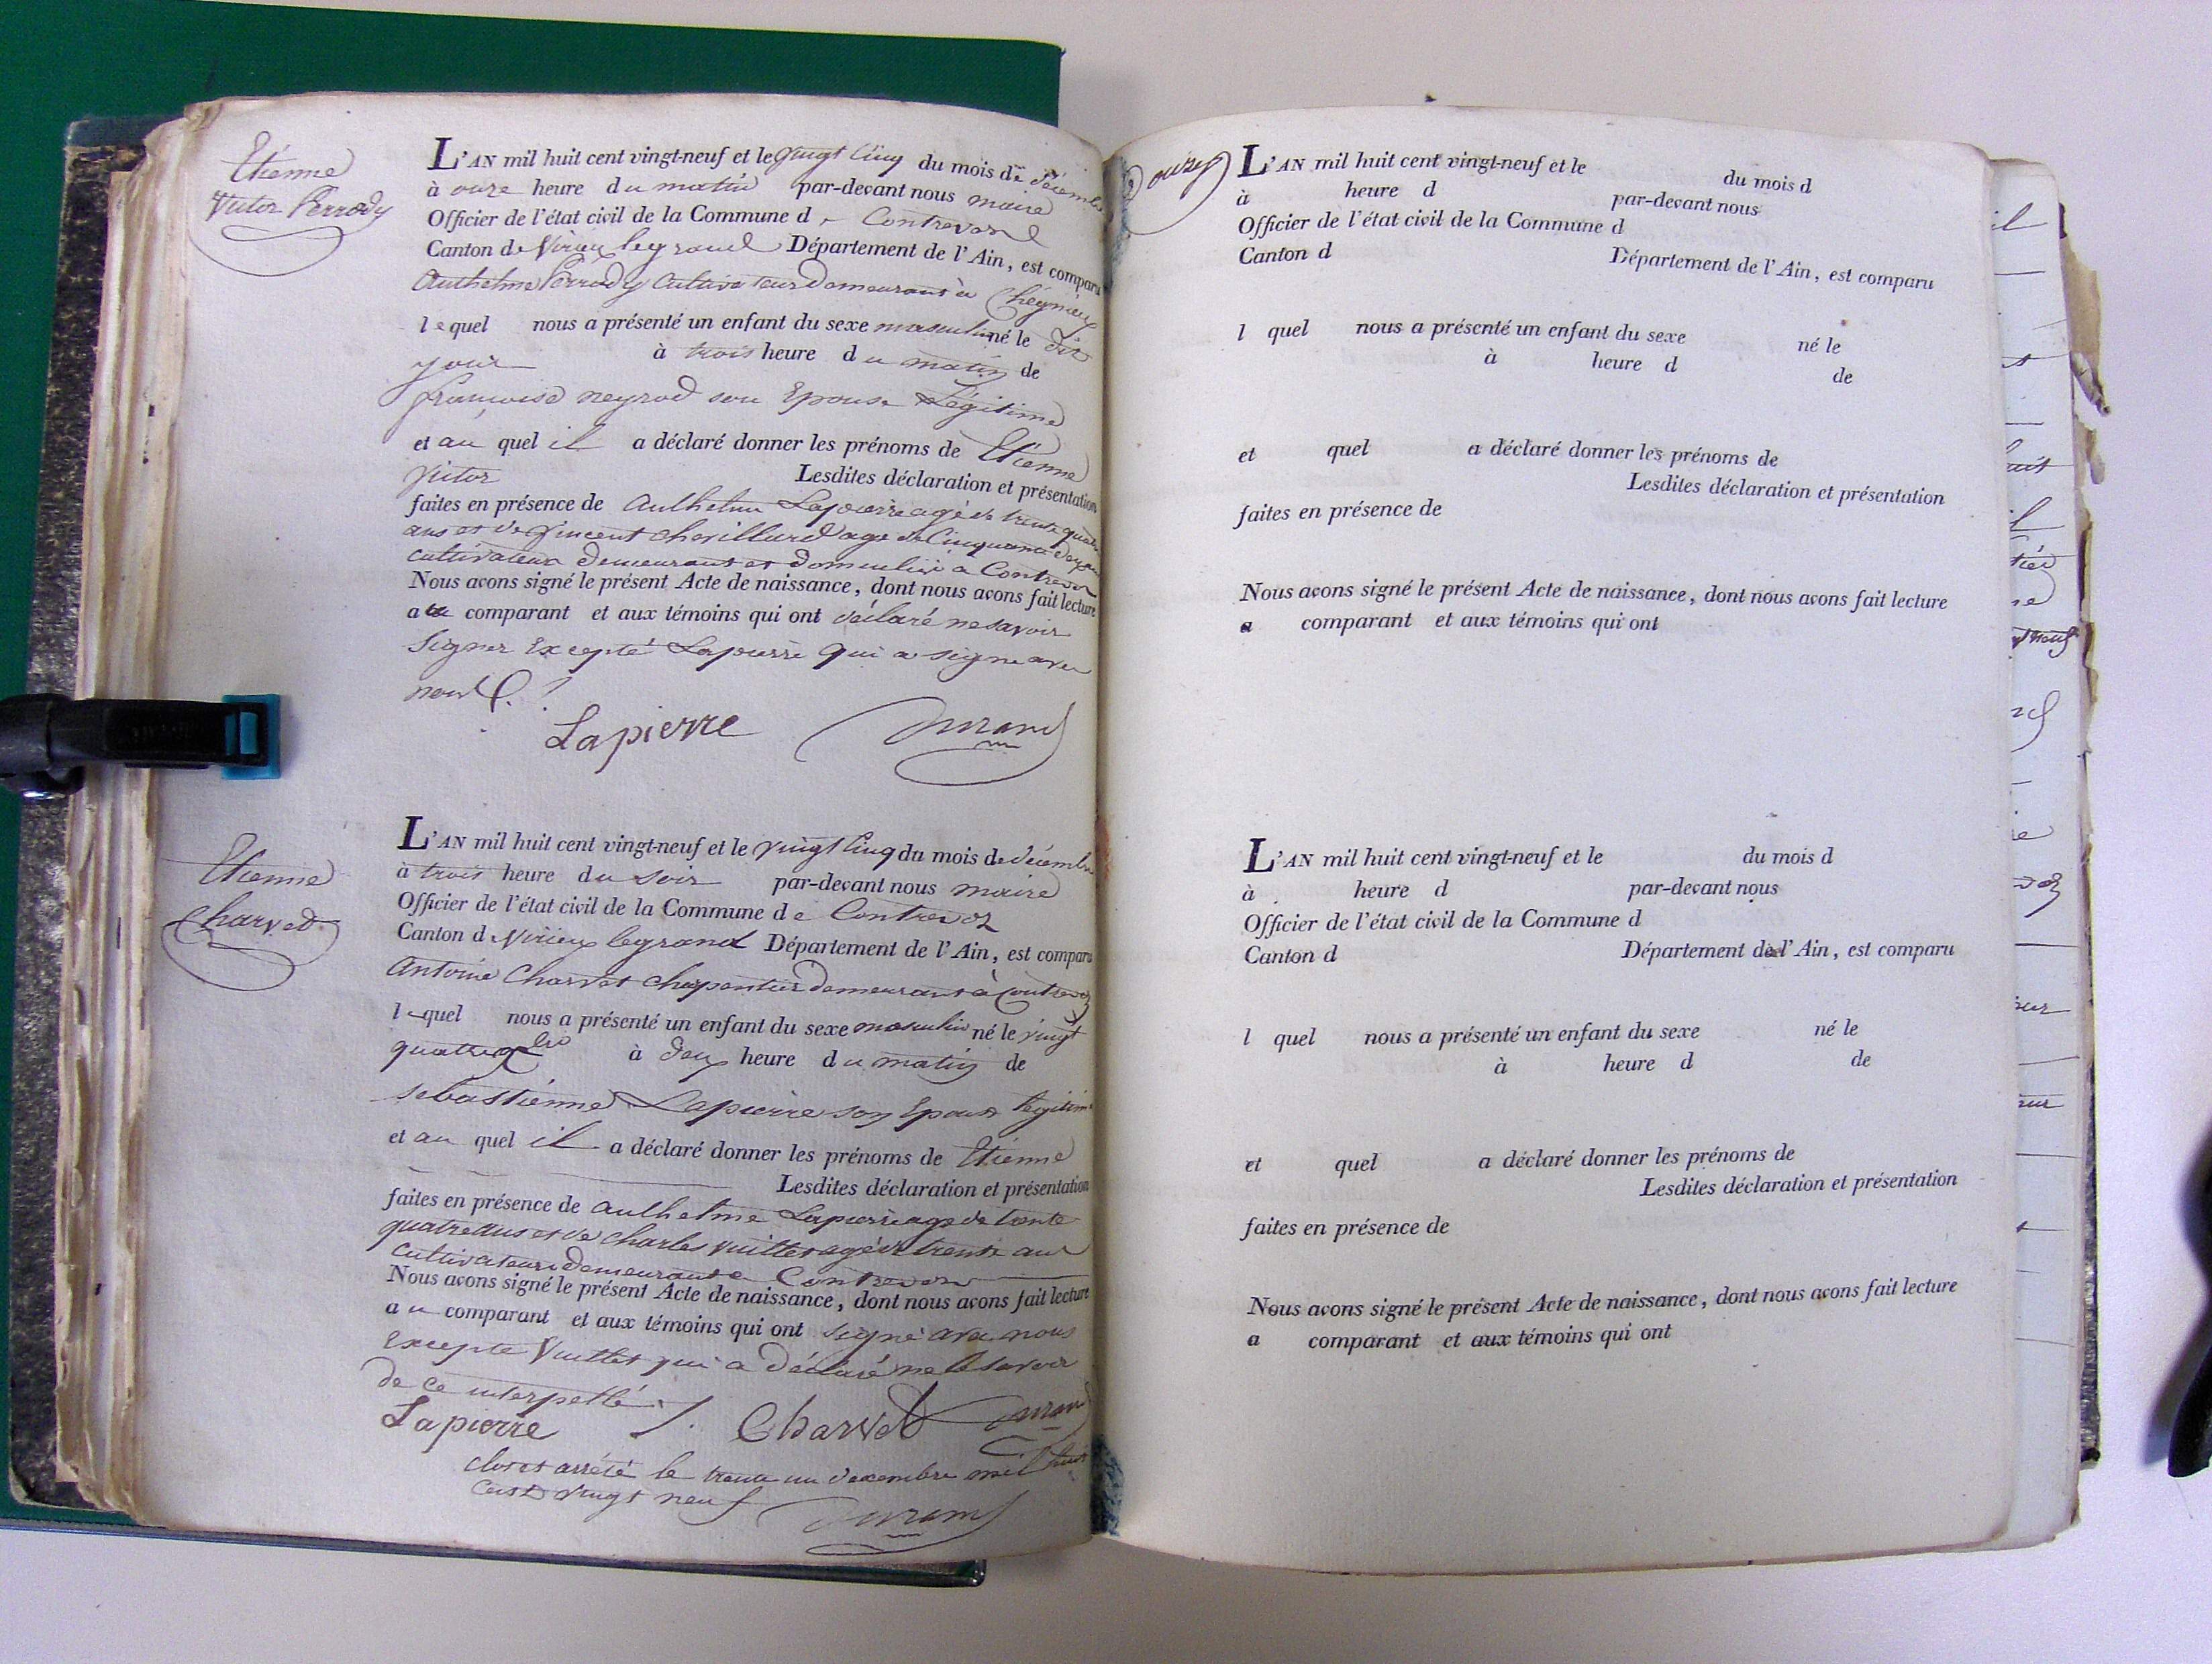 Etienne
Victor Perrody
L'AN mil huit cent vingt-neuf et le vingt cinq du mois de décembre
à onze heure du matin par-devant nous maire
Officier de l'état civil de la Commune de Contrevoz
Canton de Virieu le grand Département de l'Ain, est comparu
Anthelme Perrody cultivateur demeurant à Chégnieu
lequel nous a présenté un enfant du sexe masculin né le dit
jour à trois heure du matin de
françoise neyrod son Epouse Légitime
et au quel il a déclaré donner les prénoms de Etienne
Victor Lesdites déclaration et présentation
faites en présence de Anthelme Lapierre agé de trente quatre
ans et de Vincent chevillard agé de Cinquante deux ans
cultivateurs demeurant et domicilié à Contrevoz
Nous avons signé le présent Acte de naissance, dont nous avons fait lecture
au comparant et aux témoins qui ont déclaré ne savoir
signer Excepté Lapierre qui a signé avec
nous
Lapierre Durand
Etienne
Charvet
L'AN mil huit cent vingt-neuf et le vingt cinq du mois de décembre
à trois heure du soir par-devant nous maire
Officier de l'état civil de la Commune de Contrevoz
Canton de Virieu le grand Département de l'Ain, est comparu
Antoine Charvet charpentier demeurant à Contrevoz
lequel nous a présenté un enfant du sexe masculin né le vingt
quatre à deux heure du matin de
sebastienne Lapierre son Epouse légitime
et au quel il a déclaré donner les prénoms de Etienne
Lesdites déclaration et présentation
faites en présence de anthelme Lapierre agé de trente
quatre ans et de Charles Vuillet agé de trente ans
cultivateurs demeurant a Contrevoz
Nous avons signé le présent Acte de naissance, dont nous avons fait lecture
au comparant et aux témoins qui ont signé avec nous
excepte Vuillet qui a déclaré ne le savoir
de ce interpellé
Lapierre Charvet Durand
clos et arrété le trente un decembre mil huit
cent vingt neuf Durand
L'AN mil huit cent vingt-neuf et le du mois d
à heure d par-devant nous
Officier de l'état civil de la Commune d
Canton d Département de l'Ain, est comparu
l quel nous a présenté un enfant du sexe né le
à heure d de
et quel a déclaré donner les prénoms de
Lesdites déclaration et présentation
faites en présence de
Nous avons signé le présent Acte de naissance, dont nous avons fait lecture
a comparant et aux témoins qui ont
L'AN mil huit cent vingt-neuf et le du mois d
à heure d par-devant nous
Officier de l'état civil de la Commune d
Canton d Département de l'Ain, est comparu
l quel nous a présenté un enfant du sexe né le
à heure d de
et quel a déclaré donner les prénoms de
Lesdites déclaration et présentation
faites en présence de
Nous avons signé le présent Acte de naissance, dont nous avons fait lecture
a comparant et aux témoins qui ont